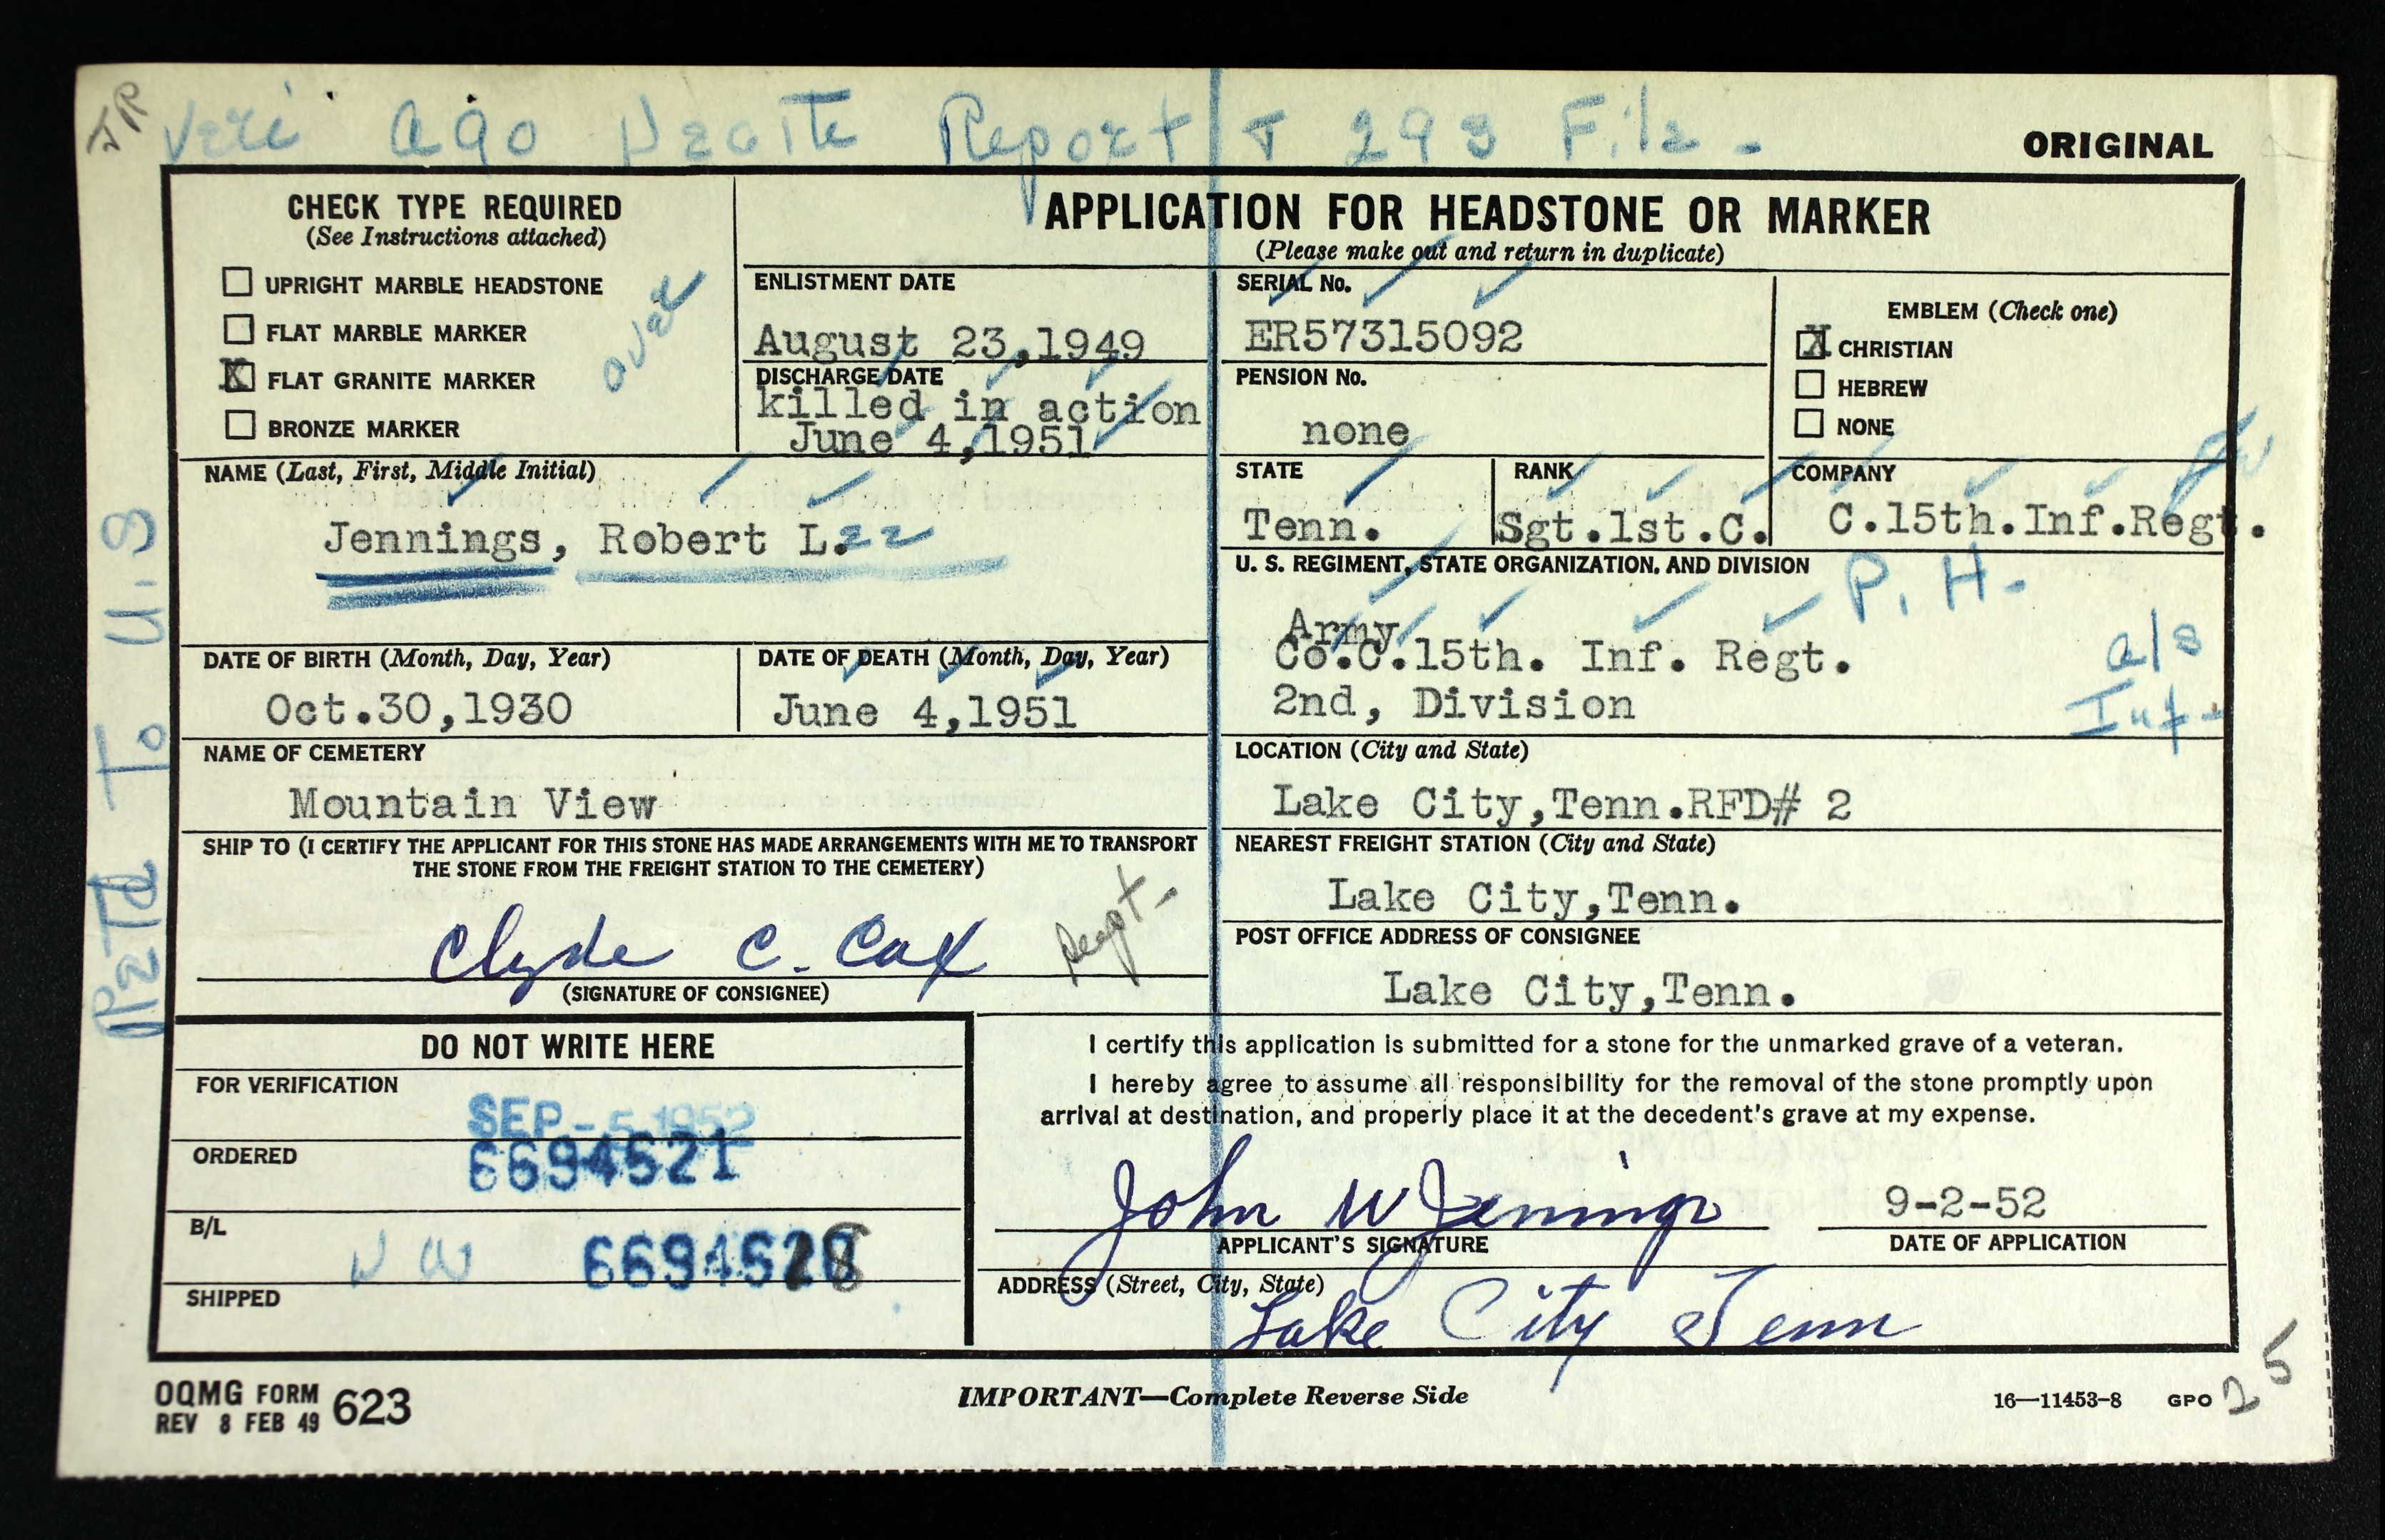 JR
Veri AGO Death Report + 293 File -
ORIGINAL
CHECK TYPE REQUIRED
(See Instructions attached)
UPRIGHT MARBLE HEADSTONE
FLAT MARBLE MARKER
X FLAT GRANITE MARKER
BRONZE MARKER
over
APPLICATION FOR HEADSTONE OR MARKER
(Please make out and return in duplicate)
ENLISTMENT DATE
August 23,1949
DISCHARGE DATE
killed in action
June 4,1951
SERIAL No.
ER57315092
PENSION No.
none
EMBLEM (Check one)
X CHRISTIAN
HEBREW
NONE
NAME (Last, First, Middle Initial)
Jennings, Robert Lee
STATE
Tenn.
RANK
Sgt.1st.C.
COMPANY
C.15th.Inf.Regt.
U. S. REGIMENT, STATE ORGANIZATION, AND DIVISION
P. H.
Army
Co.C.15th. Inf. Regt.
2nd, Division
a/s
Inf.
DATE OF BIRTH (Month, Day, Year)
Oct.30,1930
DATE OF DEATH (Month, Day, Year)
June 4,1951
NAME OF CEMETERY
Mountain View
LOCATION (City and State)
Lake City,Tenn.RFD# 2
SHIP TO (I CERTIFY THE APPLICANT FOR THIS STONE HAS MADE ARRANGEMENTS WITH ME TO TRANSPORT
THE STONE FROM THE FREIGHT STATION TO THE CEMETERY)
Clyde C. Cox
(SIGNATURE OF CONSIGNEE)
NEAREST FREIGHT STATION (City and State)
Lake City,Tenn.
POST OFFICE ADDRESS OF CONSIGNEE
Lake City,Tenn.
Retd To U.S
DO NOT WRITE HERE
FOR VERIFICATION
SEP - 5 1952
ORDERED
6694621
B/L
SHIPPED
I certify this application is submitted for a stone for the unmarked grave of a veteran.
I hereby agree to assume all responsibility for the removal of the stone promptly upon
arrival at destination, and properly place it at the decedent's grave at my expense.
John W Jennings
APPLICANT'S SIGNATURE
9-2-52
DATE OF APPLICATION
ADDRESS (Street, City, State)
Lake City Tenn
OQMG FORM 623
REV 8 FEB 49
IMPORTANT—Complete Reverse Side
16—11453-8 GPO
25